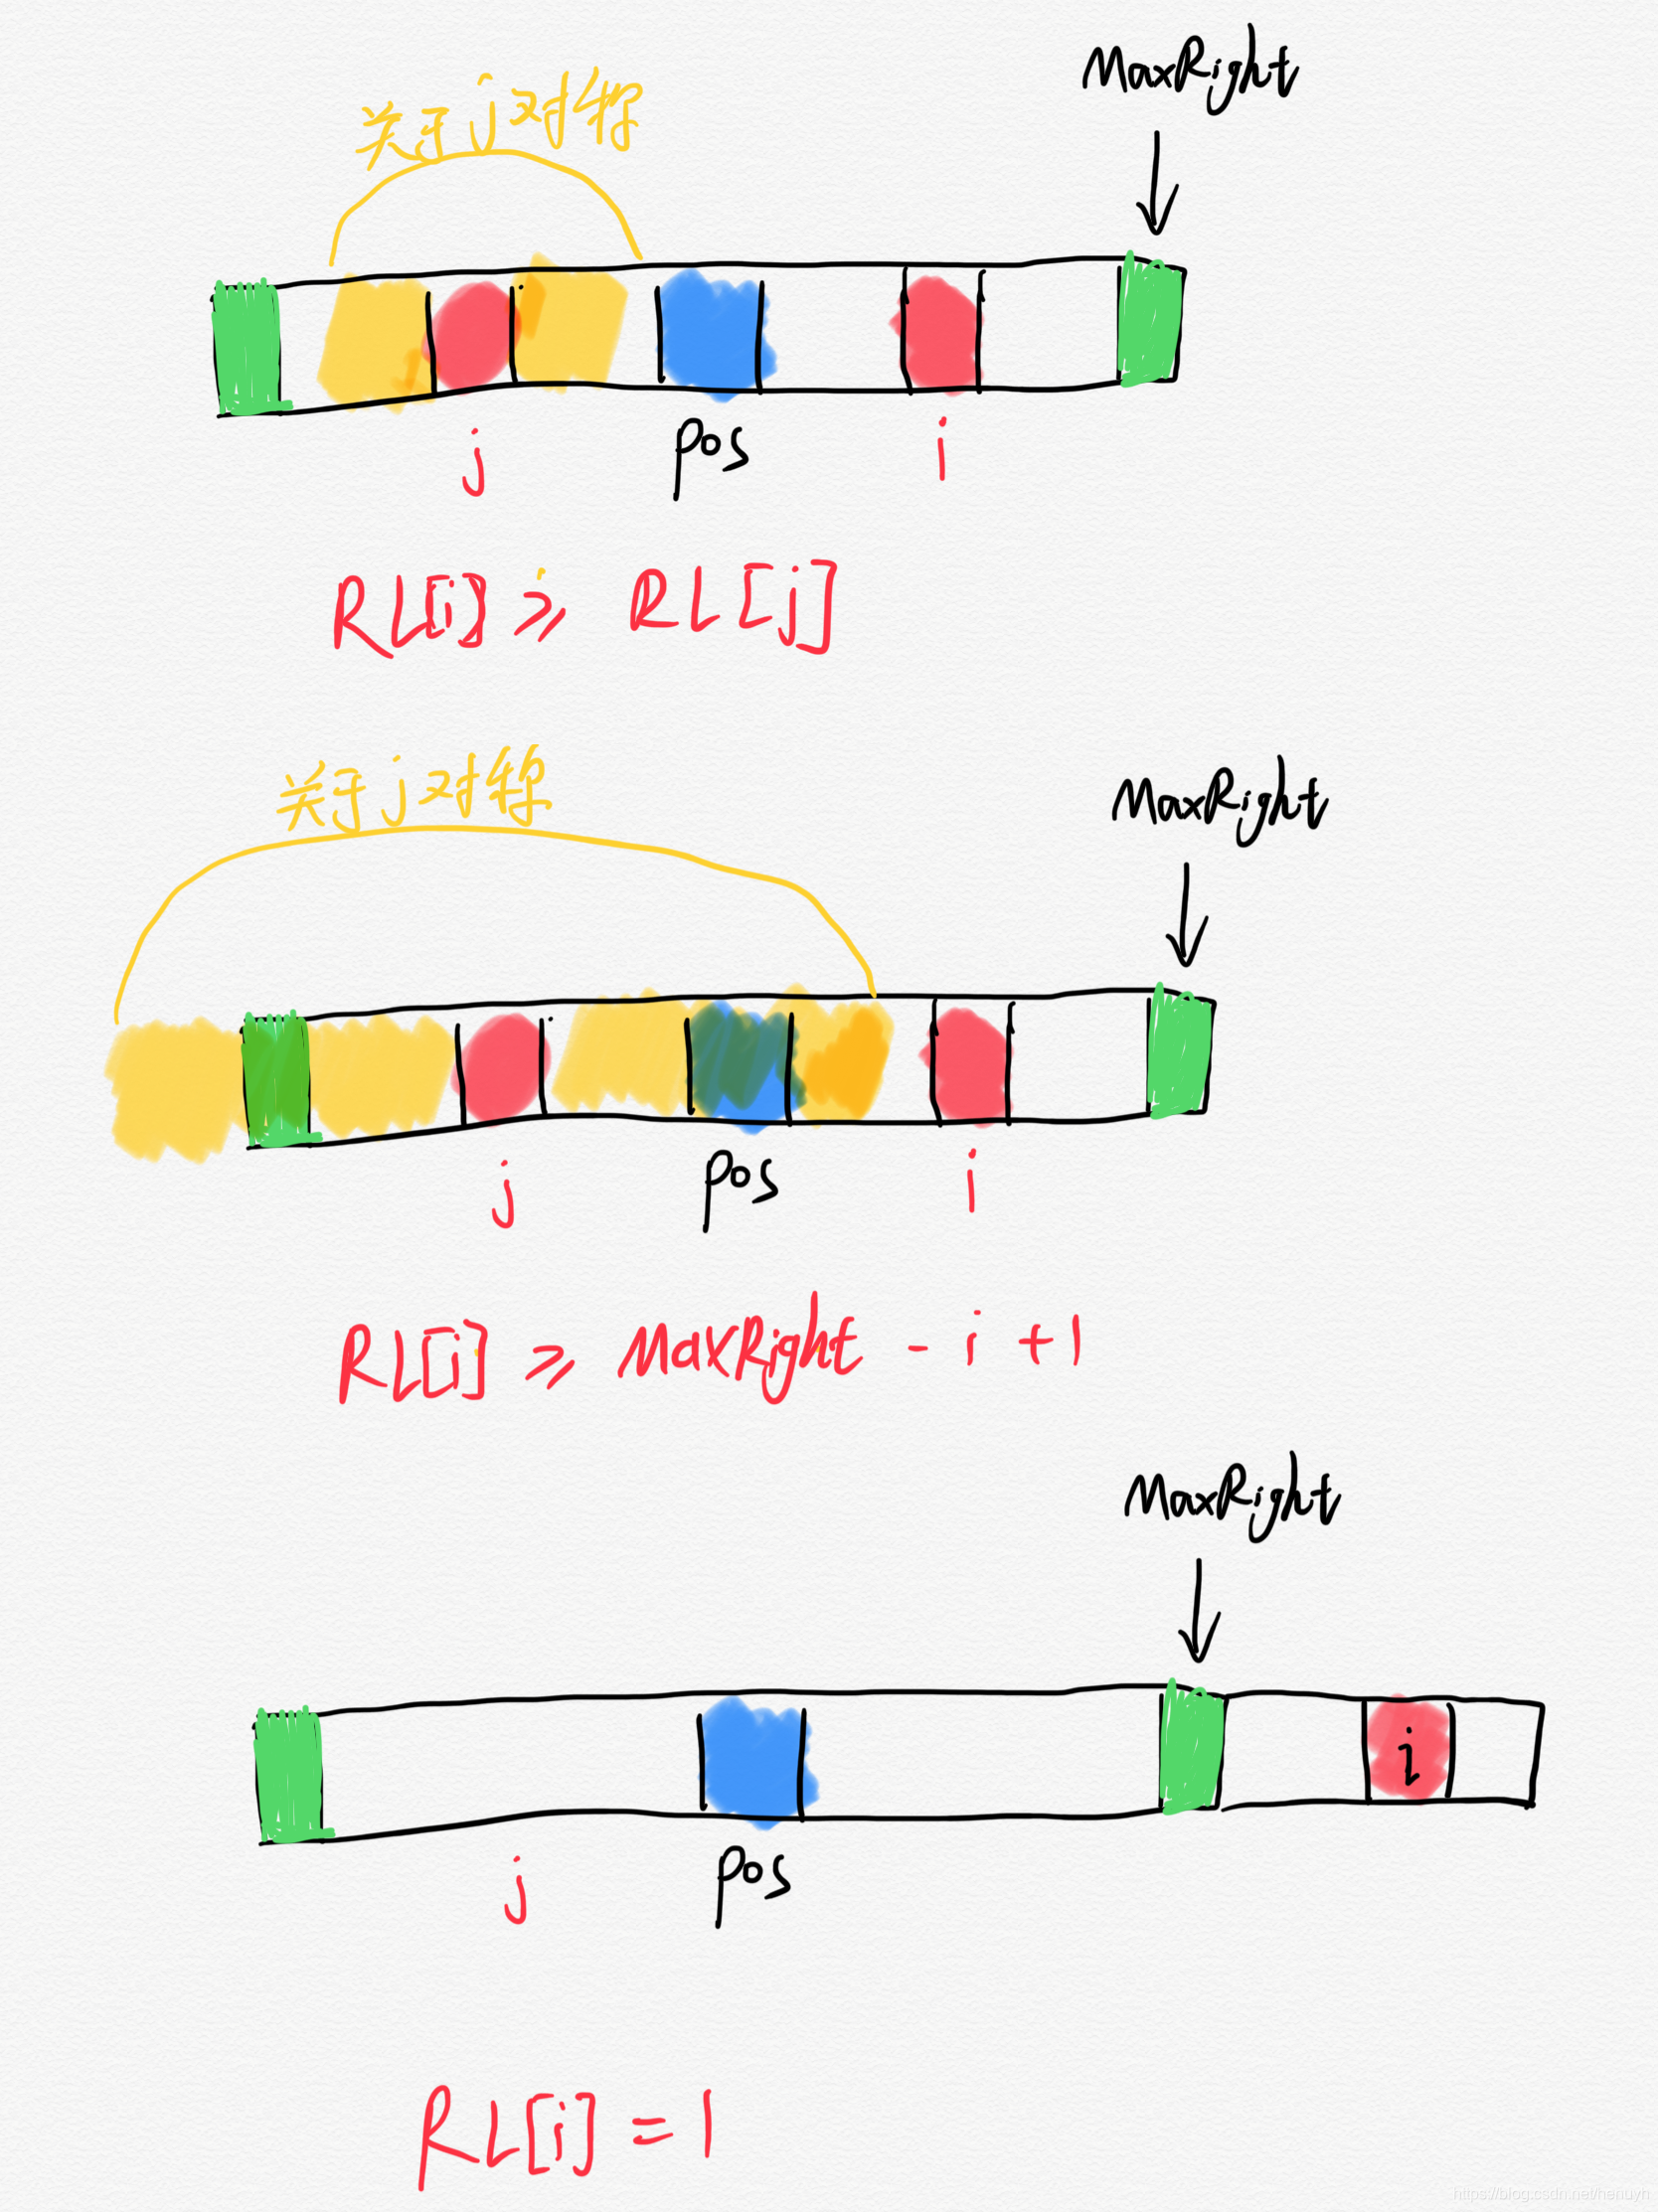 MaxRight
关于j对称
j pos i
RL[i] ≥ RL[j]
关于j对称
MaxRight
j pos i
RL[i] ≥ MaxRight - i + 1
MaxRight
i
j pos
RL[i] = 1
https://blog.csdn.net/henuyh